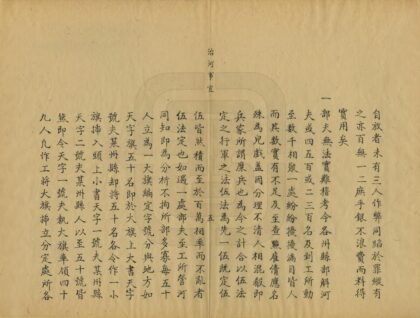 自放者未有三人作弊同陷於罪縱有
之亦百無一二庶乎銀不浪費而料得
實用矣
一部夫無法實難稽考今各州縣部解河
夫或四五百或二三百名及到工所動
至數千相聚一處紛紛攘攘滿目皆人
而其數實有不足及至查點雇債應名
殊為兒戲蓋因分理不清人相混殽即
兵家所謂糜兵也為今之計合以伍法
定之行軍之法伍法為先一伍既定伍
治河事宜
五
伍皆然積而至於百萬相率而不亂者
伍法定也如遇一部夫至工所管河
同知即為分析不拘所部多寡每五十
人立為一大旗編定字號分與地方如
天字旗五十名即於大旗上大書天字
號夫某州縣却將五十名各令作一小
旗揷入頭上小書天字一號夫某州縣
天字二號夫某縣人以至五十號皆
然即令天字一號夫執大旗率領四十
九人凡作工將大旗揷立分定處所各